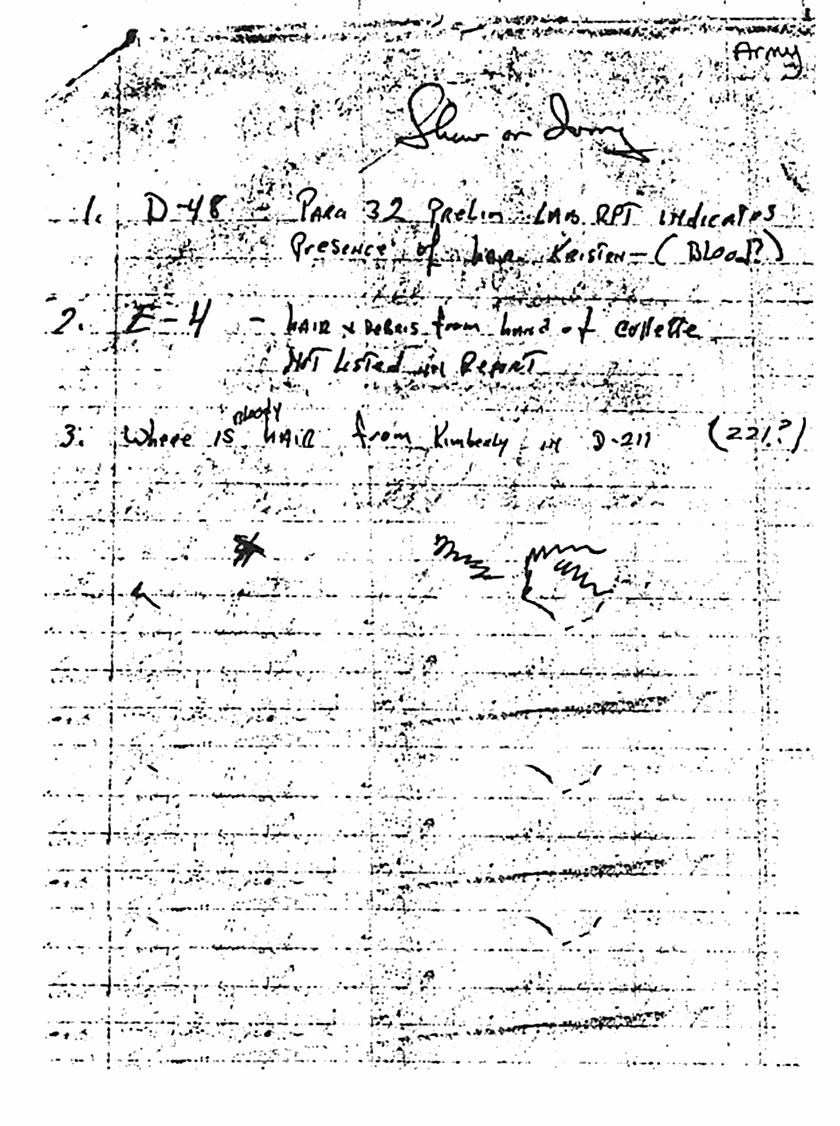 Army
Shaw or Ivory
1. D-48 - Para 32 Prelim Lab RPT indicates
Presence of hair Kristen - (Blood?)
2. E-4 - hair & Debris from hand of Collette
Not Listed in Report
3. Where is bloody hair from Kimberly in D-211 (221?)